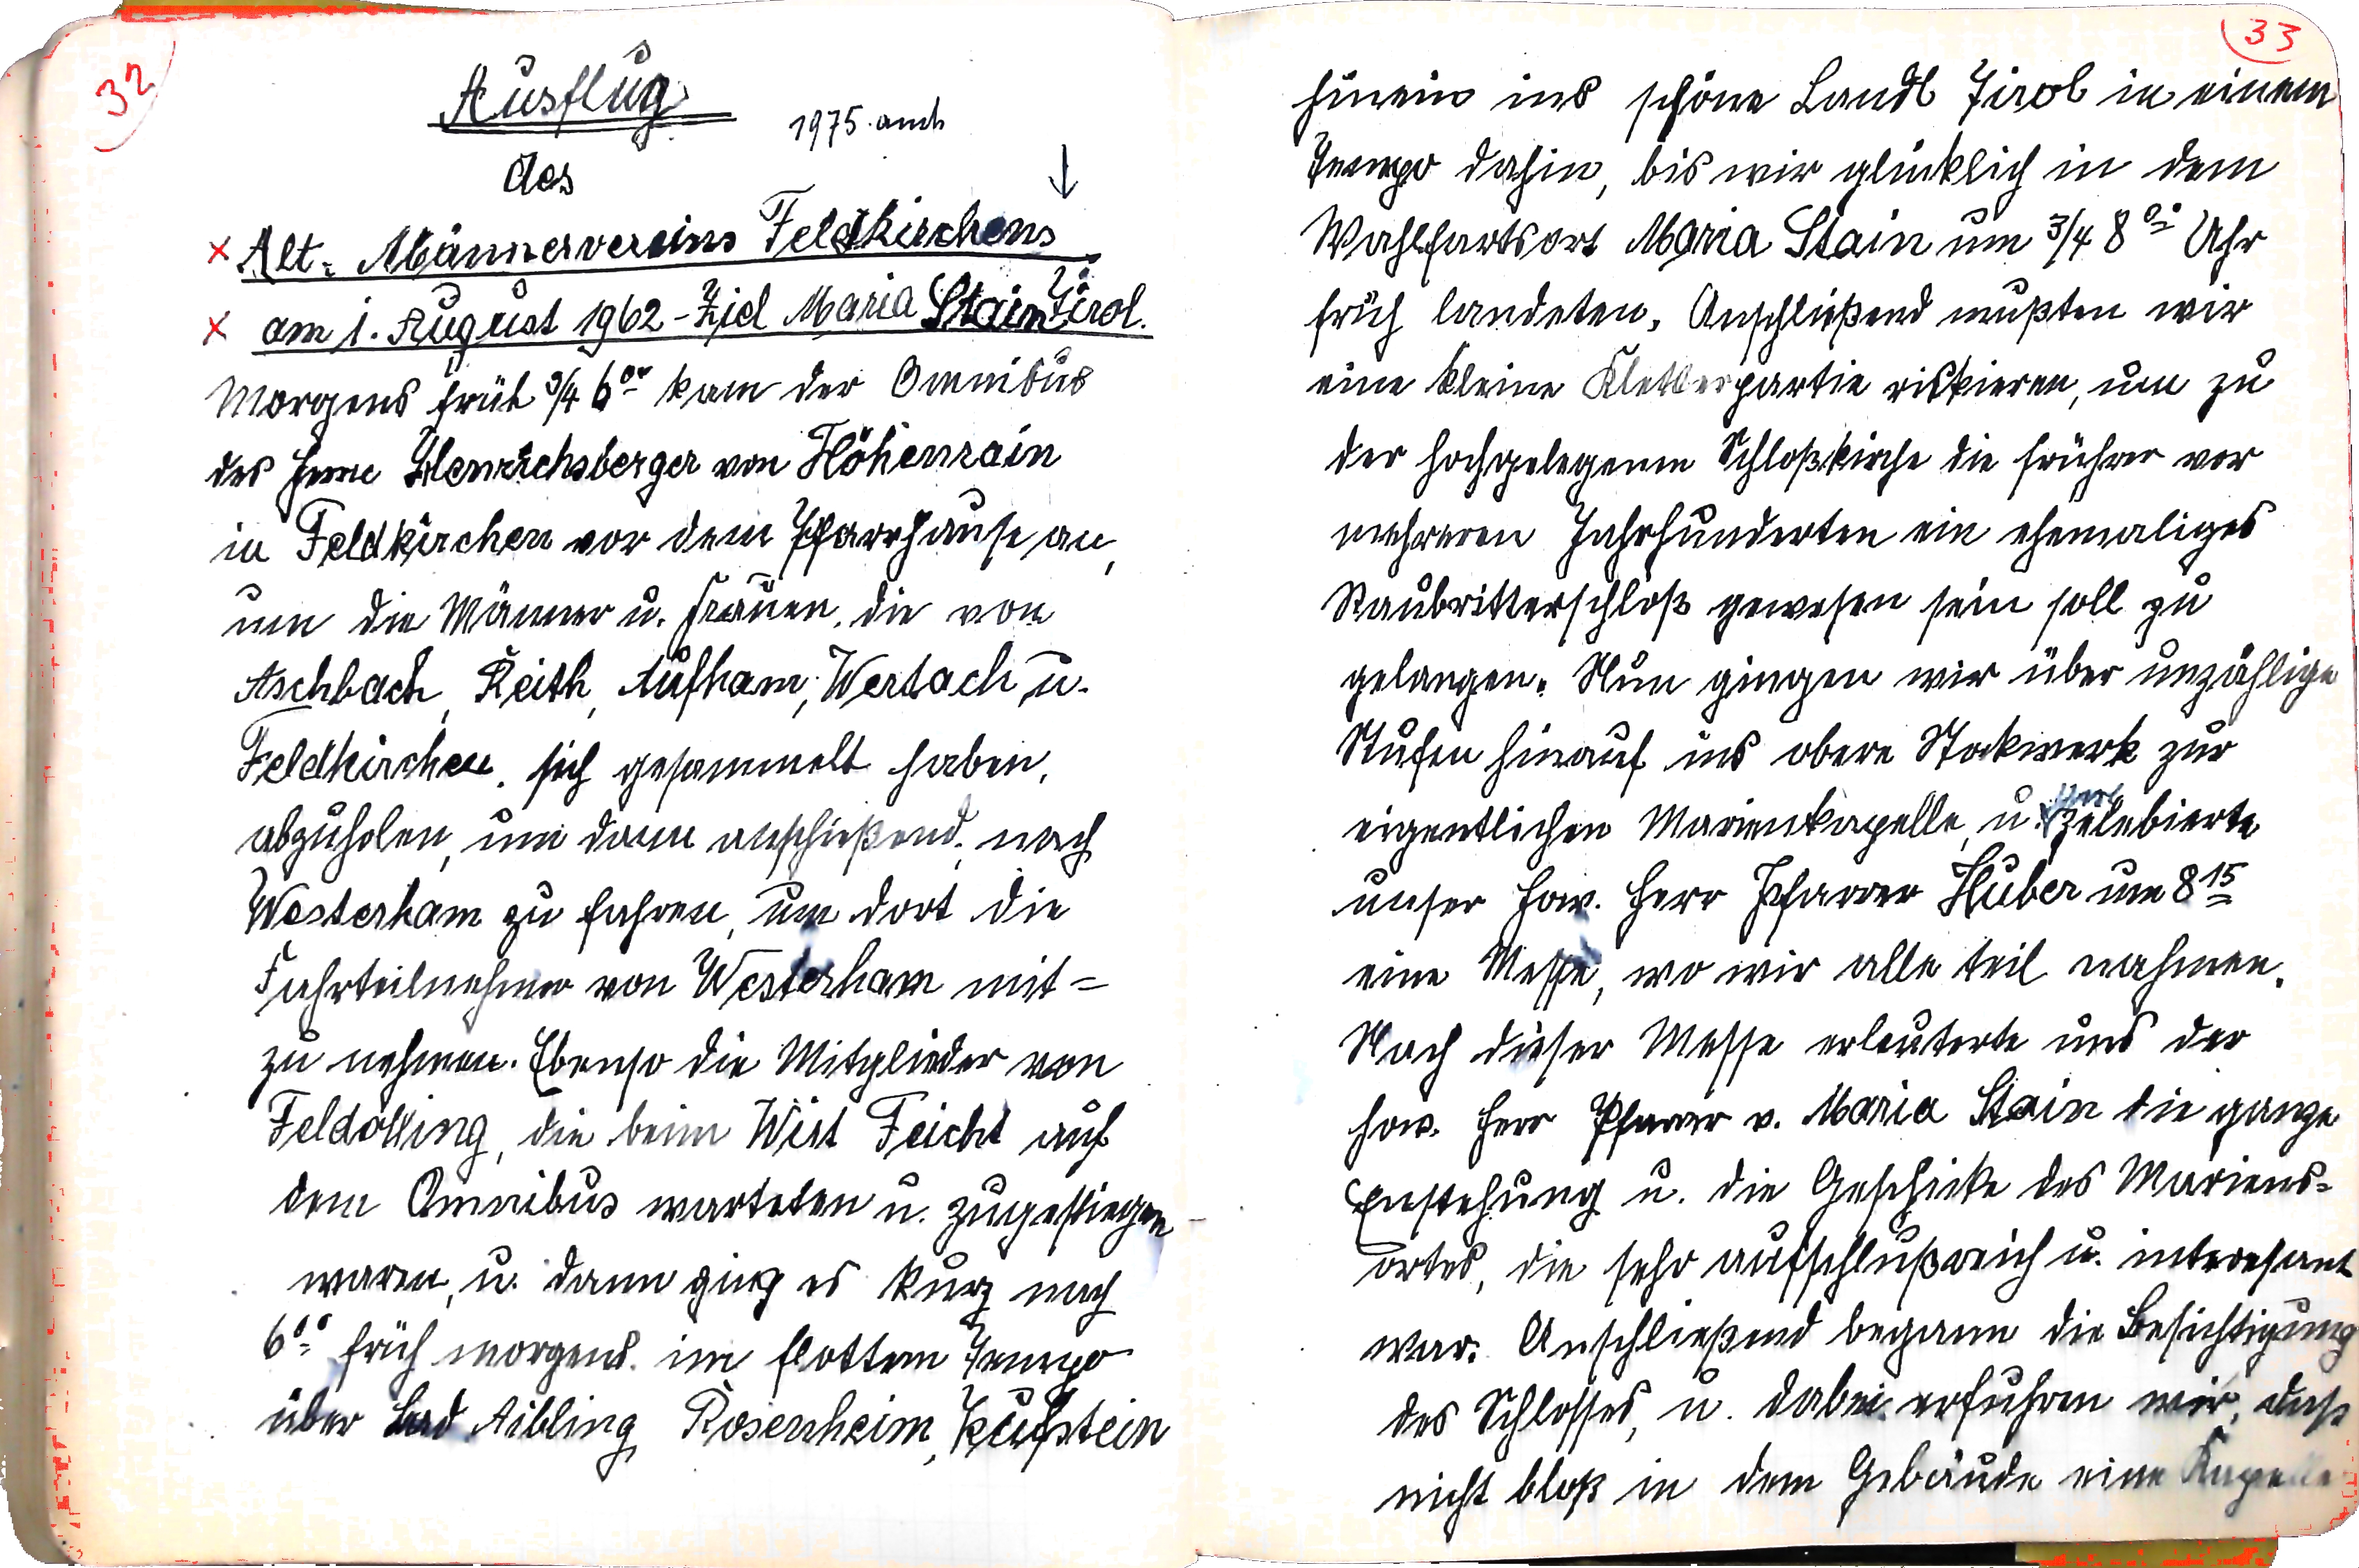 32
Ausflug
1975 auch
des
↓
x Alt-Männervereins Feldkirchens
x am 1. August 1962 - Ziel Maria Stain Tirol.
Morgens früh 3/4 6 00 kam der Omnibus
des Herrn Henrichsberger von Höhenrain
in Feldkirchen vor dem Pfarrhause an,
um die Männer u. Frauen, die von
Aschbach, Reith, Aufham, Wertach u.
Feldkirchen, sich gesammelt haben,
abzuholen, um dann anschießend, nach
Westerham zu fahren, um dort die
Fahrteilnehmer von Westerham mit=
zu nehmen. Ebenso die Mitglieder von
Feldolling, die beim Wirt Feicht auf
dem Omnibus warteten u. zugestiegen
waren, u. dann ging es kurz nach
6 00 früh morgens im flotten Tempo
über Bad Aibling Rosenheim, Kufstein
33
hinein ins schöne Landl Tirol in einem
Tempo dahin, bis wir glücklich in dem
Wahlfartsort Maria Stain um 3/4 8 00 Uhr
früh landeten. Anschließend mußten wir
eine kleine Kletterpartie riskieren, um zu
der hochgelegenen Schloßkirche die früher vor
mehreren Jahrhunderten ein ehemaliges
Raubritterschloß gewesen sein soll zu
gelangen. Nun gingen wir über unzählige
Stufen hinauf ins obere Stockwerk zur
eigentlichen Marienkapelle, u. zelebierte
unser how. Herr Pfarrer Huber um 8 15
eine Messe, wo wir alle teil nahmen.
Nach dieser Messe erleuterte uns der
how. Herr Pfarrer v. Maria Stain die ganze
Enstehung u. die Geschicke des Mariens=
ortes, die sehr aufschlußreich u. interesant
war. Anschließend begann die Besichtigung
des Schlosses, u. dabei erfuhren wir, dass
nicht bloß in dem Gebäude eine Kapelle